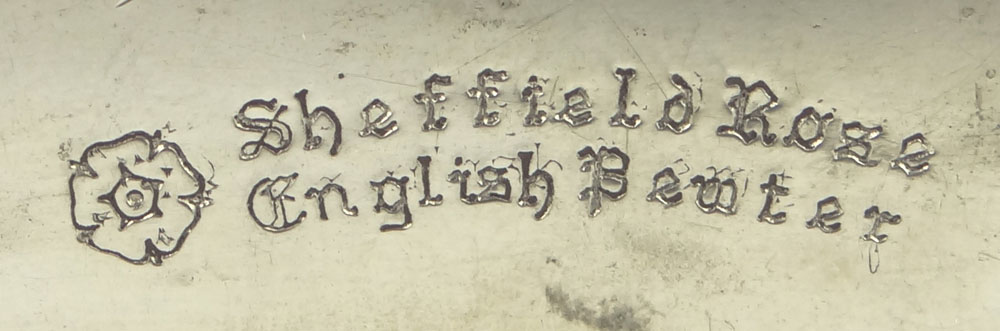 Sheffield Rose
English Pewter